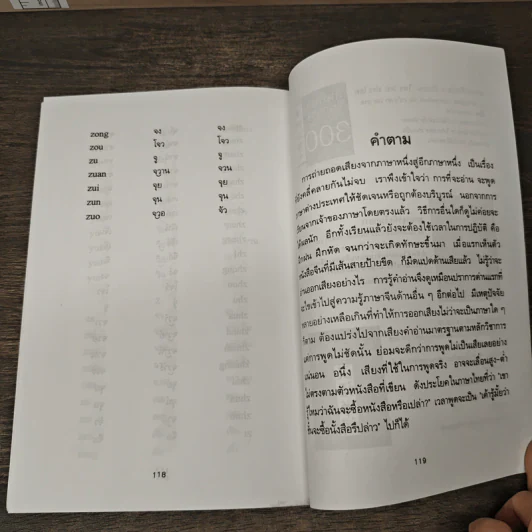 zong จง จง
zou โจว โจว
zu จู จู
zuan จวาน จวน
zui จุย จุย
zun จุน จุน
zuo จวอ จัว
118
คำตาม
การถ่ายถอดเสียงจากภาษาหนึ่งสู่อีกภาษาหนึ่ง เป็นเรื่อง
คลี่คลายกันไม่จบ เราพึงเข้าใจว่า การที่จะอ่าน จะพูด
ภาษาต่างประเทศให้ชัดเจนหรือถูกต้องบริบูรณ์ นอกจากการ
เรียนจากเจ้าของภาษาโดยตรงแล้ว วิธีการอื่นใดก็ดูไม่ค่อยจะ
ได้ผลนัก อีกทั้งเรียนแล้วยังจะต้องใช้เวลาในการปฏิบัติ คือ
ฝึกฝน ฝึกหัด จนกว่าจะเกิดทักษะขึ้นมา เมื่อแรกเห็นตัว
หนังสือจีนที่มีเส้นสายป้ายขีด ก็มืดแปดด้านเสียแล้ว ไม่รู้ว่าจะ
อ่านออกเสียงอย่างไร การรู้คำอ่านจึงดูเหมือนปราการด่านแรกที่
จะไรเข้าไปสู่ความรู้ภาษาจีนด้านอื่น ๆ อีกต่อไป มีเหตุปัจจัย
หลายอย่างเหลือเกินที่ทำให้การออกเสียงไม่ว่าจะเป็นภาษาใด ๆ
ก็ตาม ต้องแปร่งไปจากเสียงคำอ่านมาตรฐานตามหลักวิชาการ
แต่การพูดไม่ชัดนั้น ย่อมจะดีกว่าการพูดไม่เป็นเสียเลยอย่าง
แน่นอน อนึ่ง เสียงที่ใช้ในการพูดจริง อาจจะเลื่อนสูง-ต่ำ
ไม่ตรงตามตัวหนังสือที่เขียน ดังประโยคในภาษาไทยที่ว่า "เขา
รู้ไหมว่าฉันจะซื้อหนังสือหรือเปล่า?" เวลาพูดจะเป็น "เค้ารู้มั้ยว่า
ชั้นจะซื้อนั้งสือรึปล่าว" ไปก็ได้
119